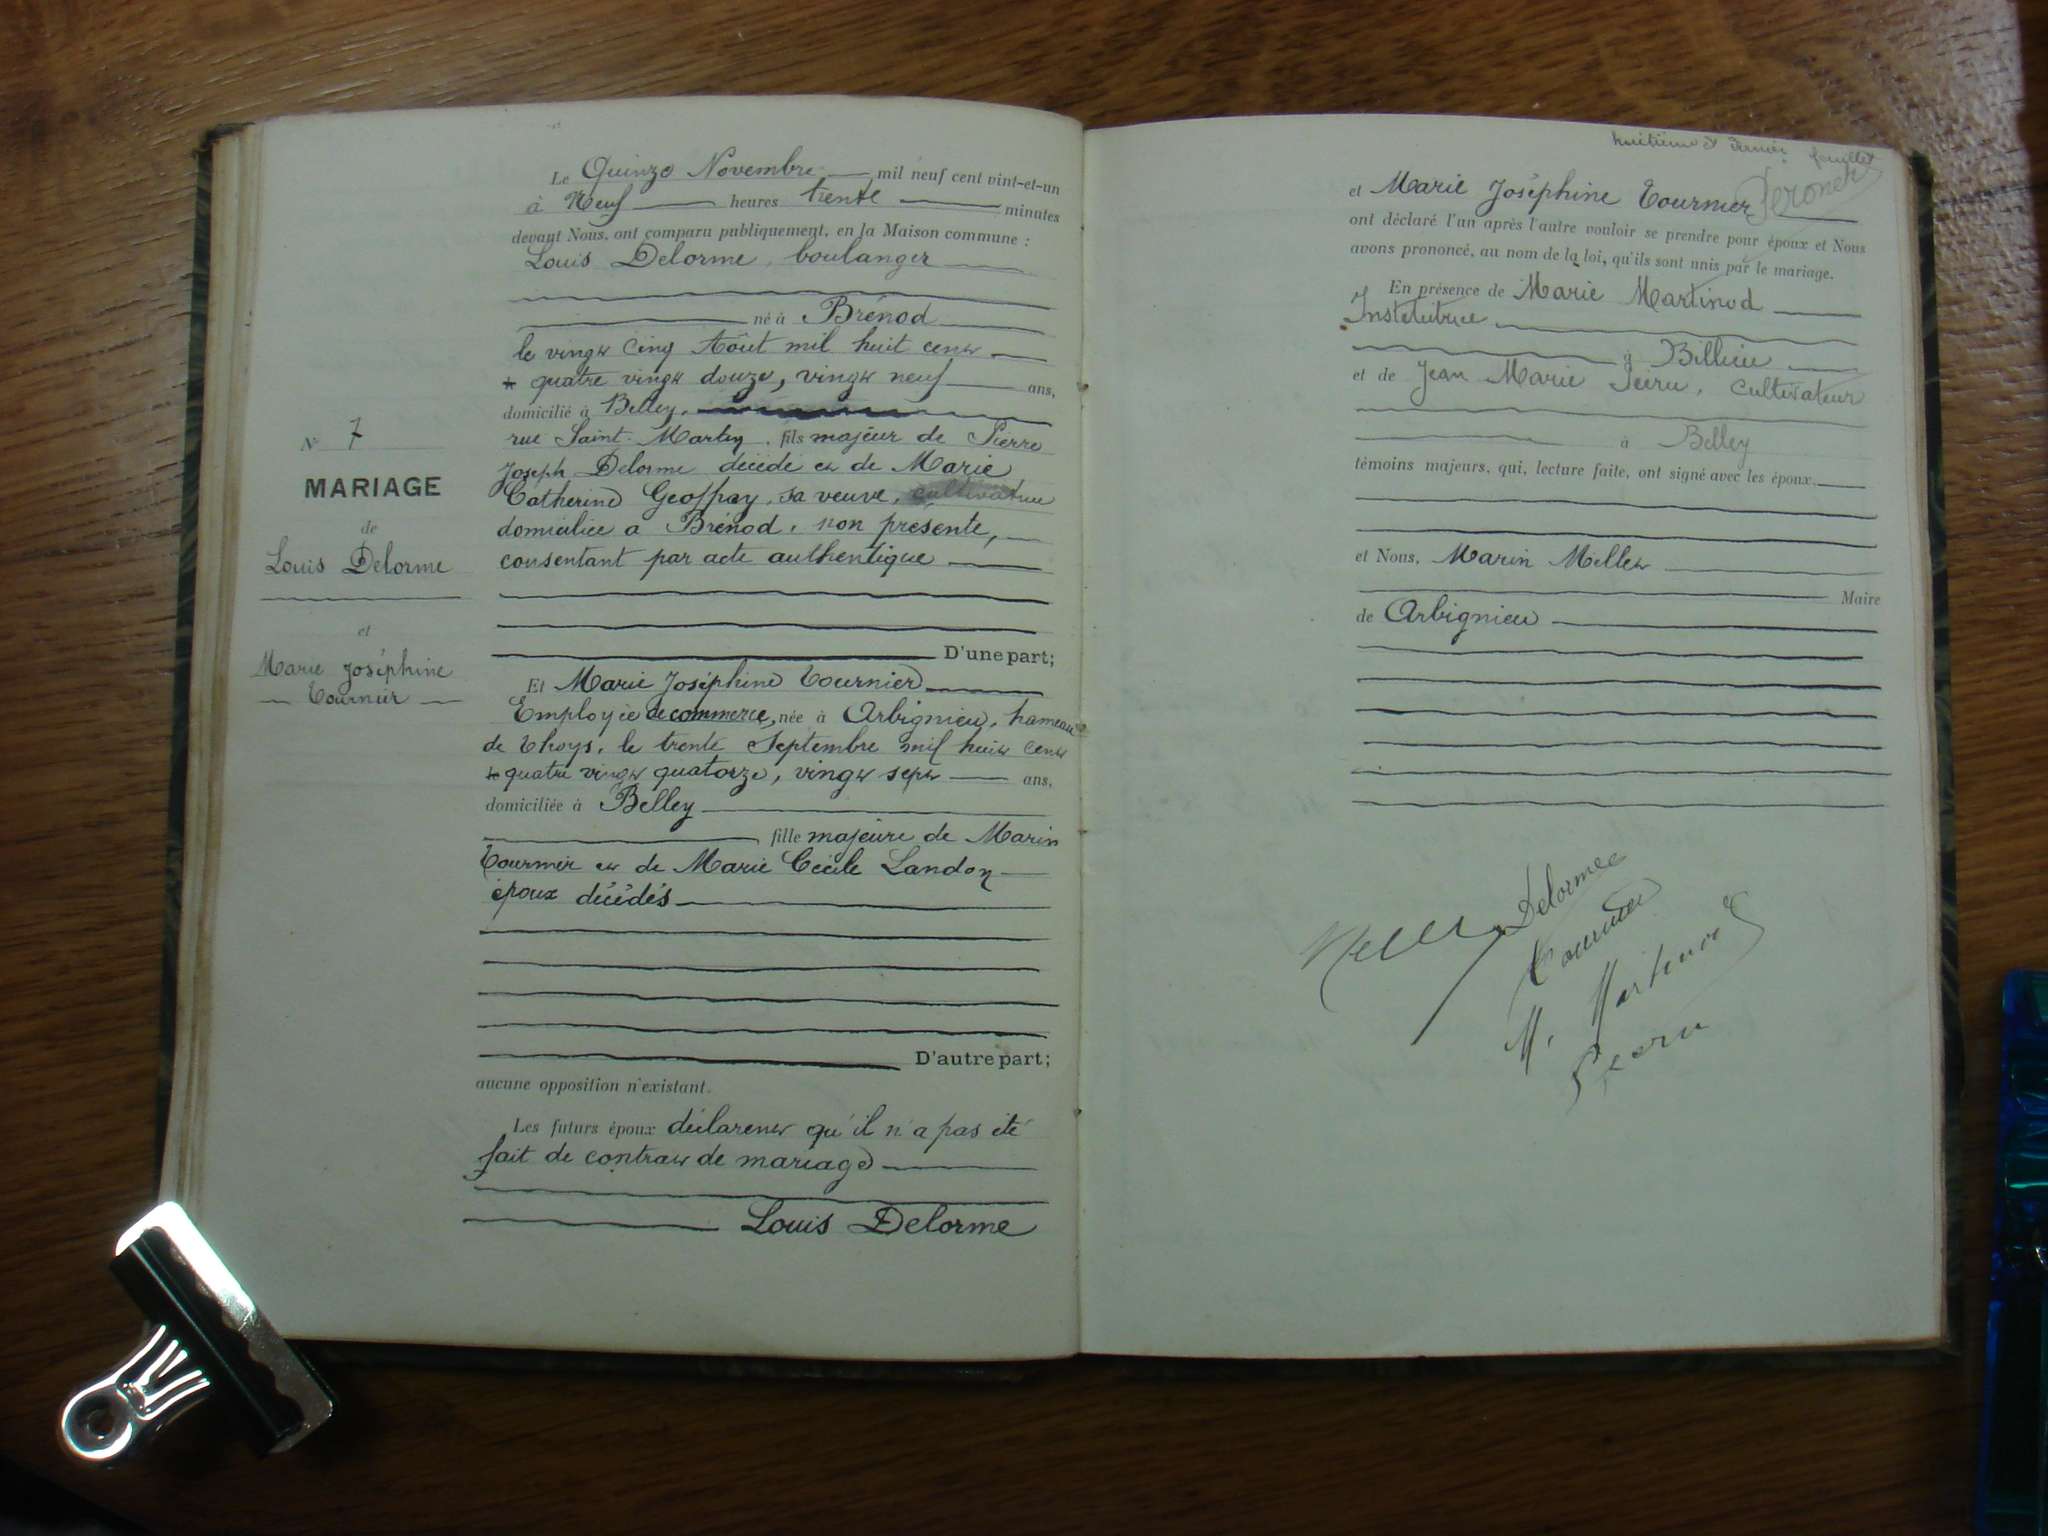 Le Quinze Novembre mil neuf cent vint-et-un
à Neuf heures trente minutes
devant Nous, ont comparu publiquement, en la Maison commune :
Louis Delorme, boulanger
né à Brénod
le vingt cinq Août mil huit cent
quatre vingt douze, vingt neuf ans,
domicilié à Belley,
rue Saint-Martin, fils majeur de Pierre
Joseph Delorme décédé et de Marie
Catherine Geoffray, sa veuve, cultivatrice
domiciliée à Brénod, non présente,
consentant par acte authentique
D'une part;
Et Marie Joséphine Tournier
Employée de commerce, née à Arbignieu, hameau
de Thoys, le trente Septembre mil huit cent
quatre vingt quatorze, vingt sept ans,
domiciliée à Belley
fille majeure de Marin
Tournier et de Marie Cécile Landon
époux décédés
D'autre part;
aucune opposition n'existant.
Les futurs époux déclarent qu'il n'a pas été
fait de contrat de mariage
Louis Delorme
N° 7
MARIAGE
de
Louis Delorme
et
Marie Joséphine
Tournier
huitième et dernier feuillet
et Marie Joséphine Tournier
ont déclaré l'un après l'autre vouloir se prendre pour époux et Nous
avons prononcé, au nom de la loi, qu'ils sont unis par le mariage.
En présence de Marie Martinod
Institutrice
à Billieu
et de Jean Marie Peiru, cultivateur
à Belley
témoins majeurs, qui, lecture faite, ont signé avec les époux.
et Nous, Marin Millet
Maire
de Arbignieu
Delorme
Tournier
M. Martinod